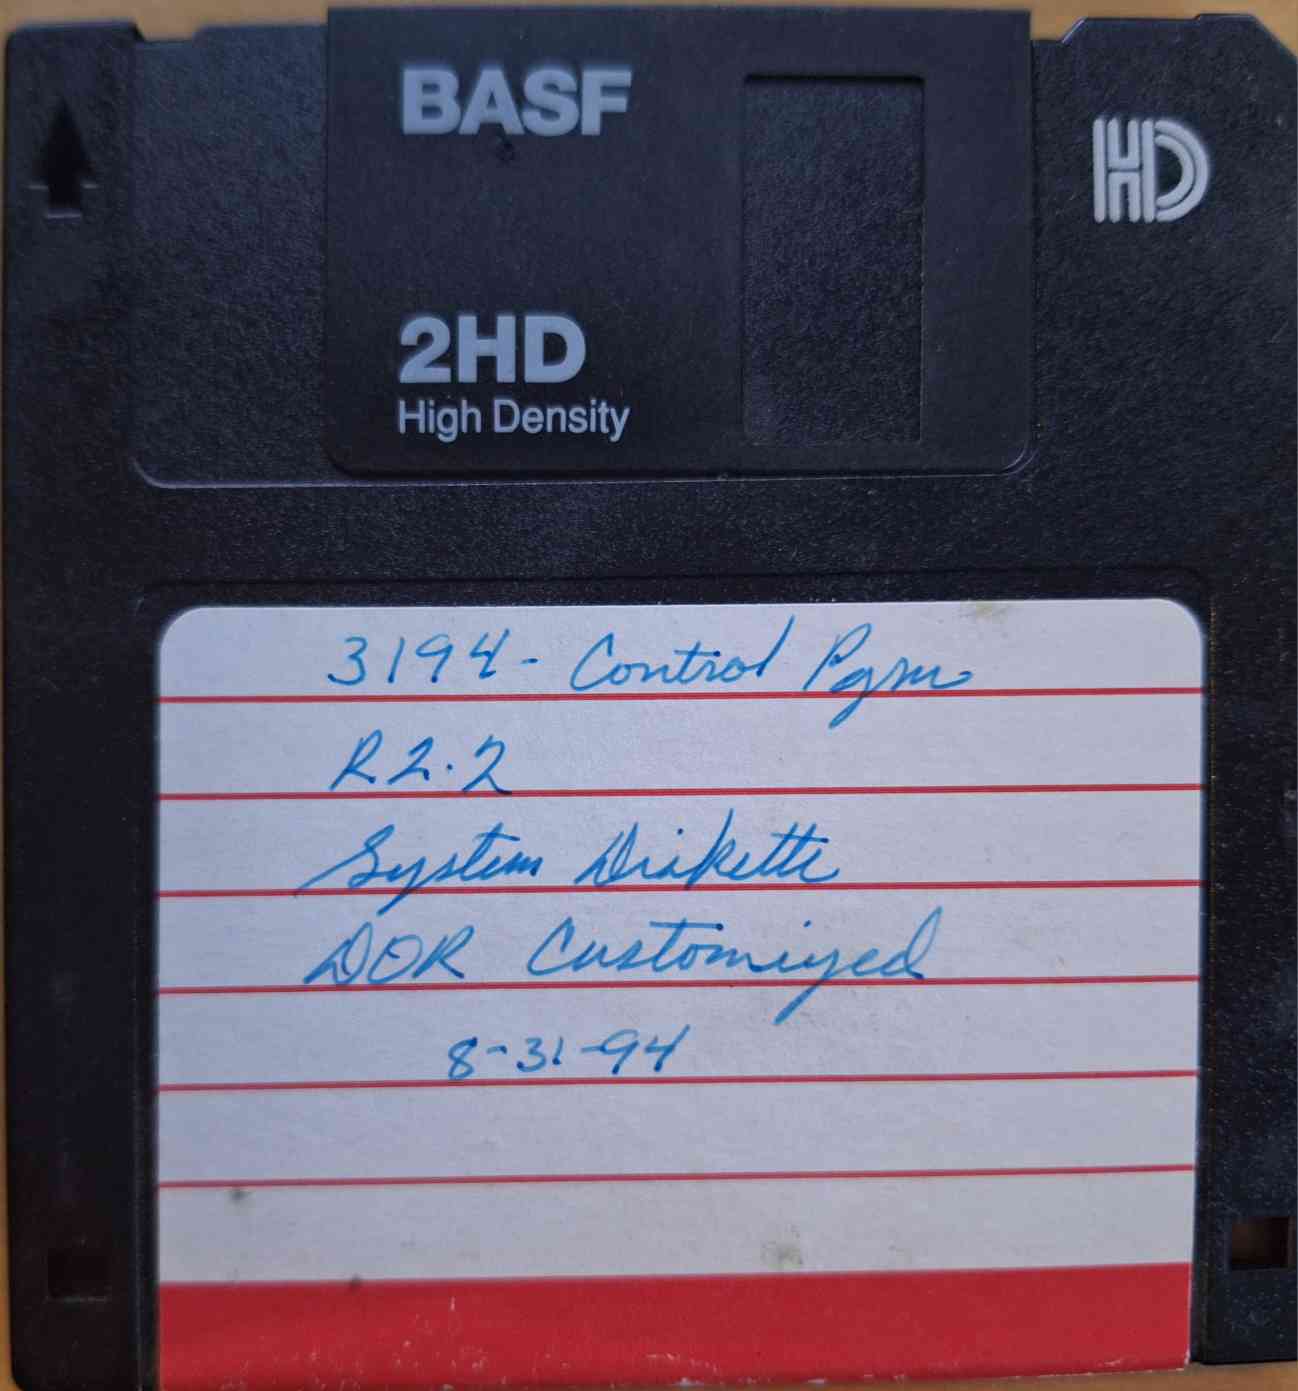 BASF
HD
2HD
High Density
3194 - Control Pgm
R2.2
System Diskette
DOR Customized
8-31-94